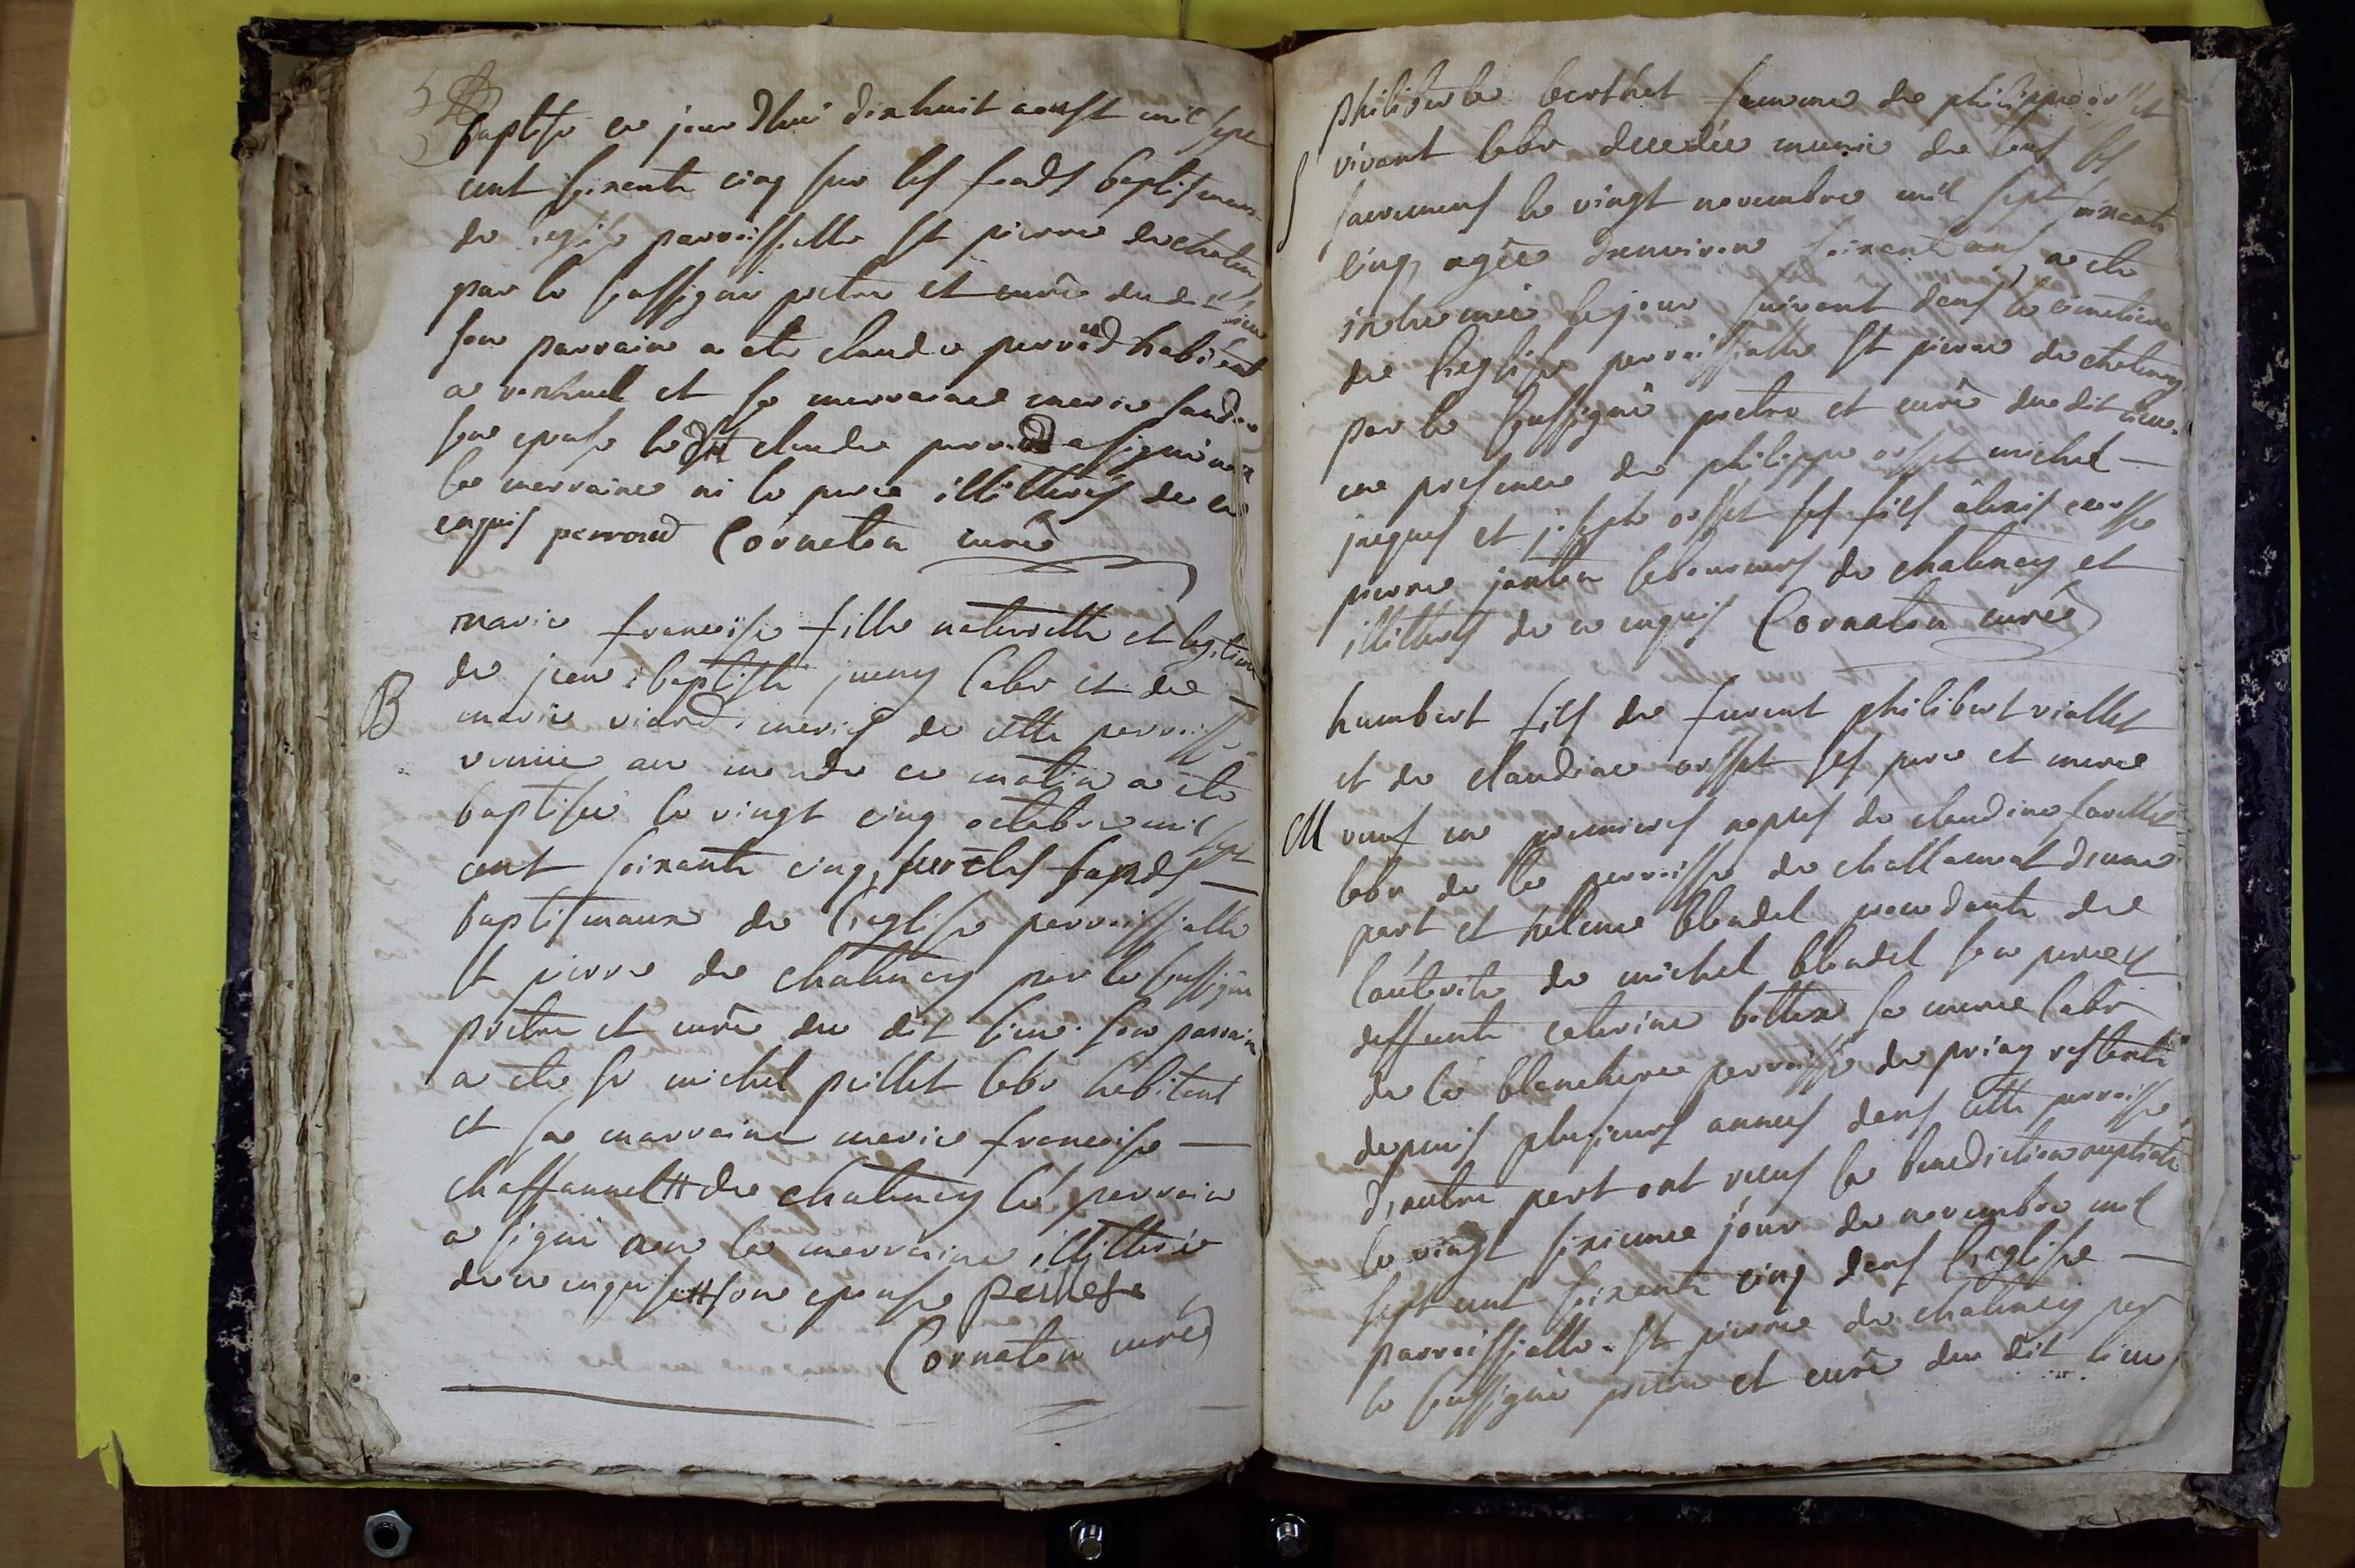 baptisé ce jourdhui dixhuit aoust mil sept
cent soixante cinq sur les fonds baptismaux
de leglise parroissialle st pierre de chatenay
par le soussigné pretre et curé du dit lieu
son parrain a ete claude perroud habitant
a et sa marraine marie
son epouse le dit claude perroud a signé non
la marraine ni le pere illitterés de ce
enquis perroud Cornaton curé
marie françoise fille naturelle et legitime
de jean baptiste jueny labr et de
B
marie viard mariés de cette parroisse
venüe au monde ce matin a ete
baptisée le vingt cinq octobre mil sept
cent soixante cinq, sur les fonds
baptismaux de l'eglise parroissialle
st pierre de chatenay par le soussigné
pretre et curé du dit lieu. son parrain
a ete sr michel peillet labr habitant
et sa marraine marie françoise
chaffannel # de chatenay le parrain
a signé non la marraine illitterée
de ce enquise # son epouse peillet
Cornaton curé
philiberte berthet femme de philippe orset
vivant labr decedée munie de tous les
S
sacremens le vingt novembre mil sept soixante
cinq, agée d'environ soixante ans, a ete
inhumée le jour suivant dans le cimetiere
de l'eglise parroissialle st pierre de chatenay
par le soussigné pretre et curé du dit lieu.
en presence de philippe orset michel
jaques et joseph orset ses fils alexis
pierre janton laboureurs de chatenay et
illitterés de ce enquis Cornaton curé
humbert fils de furent philibert viallet
et de claudine orset ses pere et mere
M
veuf en premieres nopces de claudine
labr de la parroisse de chattenay d'une
part et helene blondel procedante de
l'autorité de michel blondel son pere et
deffunte caterine bottex sa mere labr
de la blancherie parroisse de priay restente
depuis plusieurs années dans cette parroisse,
d'autre part ont reçus la benediction nuptiale
le vingt sixieme jour de novembre mil
sept cent soixante cinq dans l'eglise
parroissialle st pierre de chatenay par
le soussigné pretre et curé du dit lieu